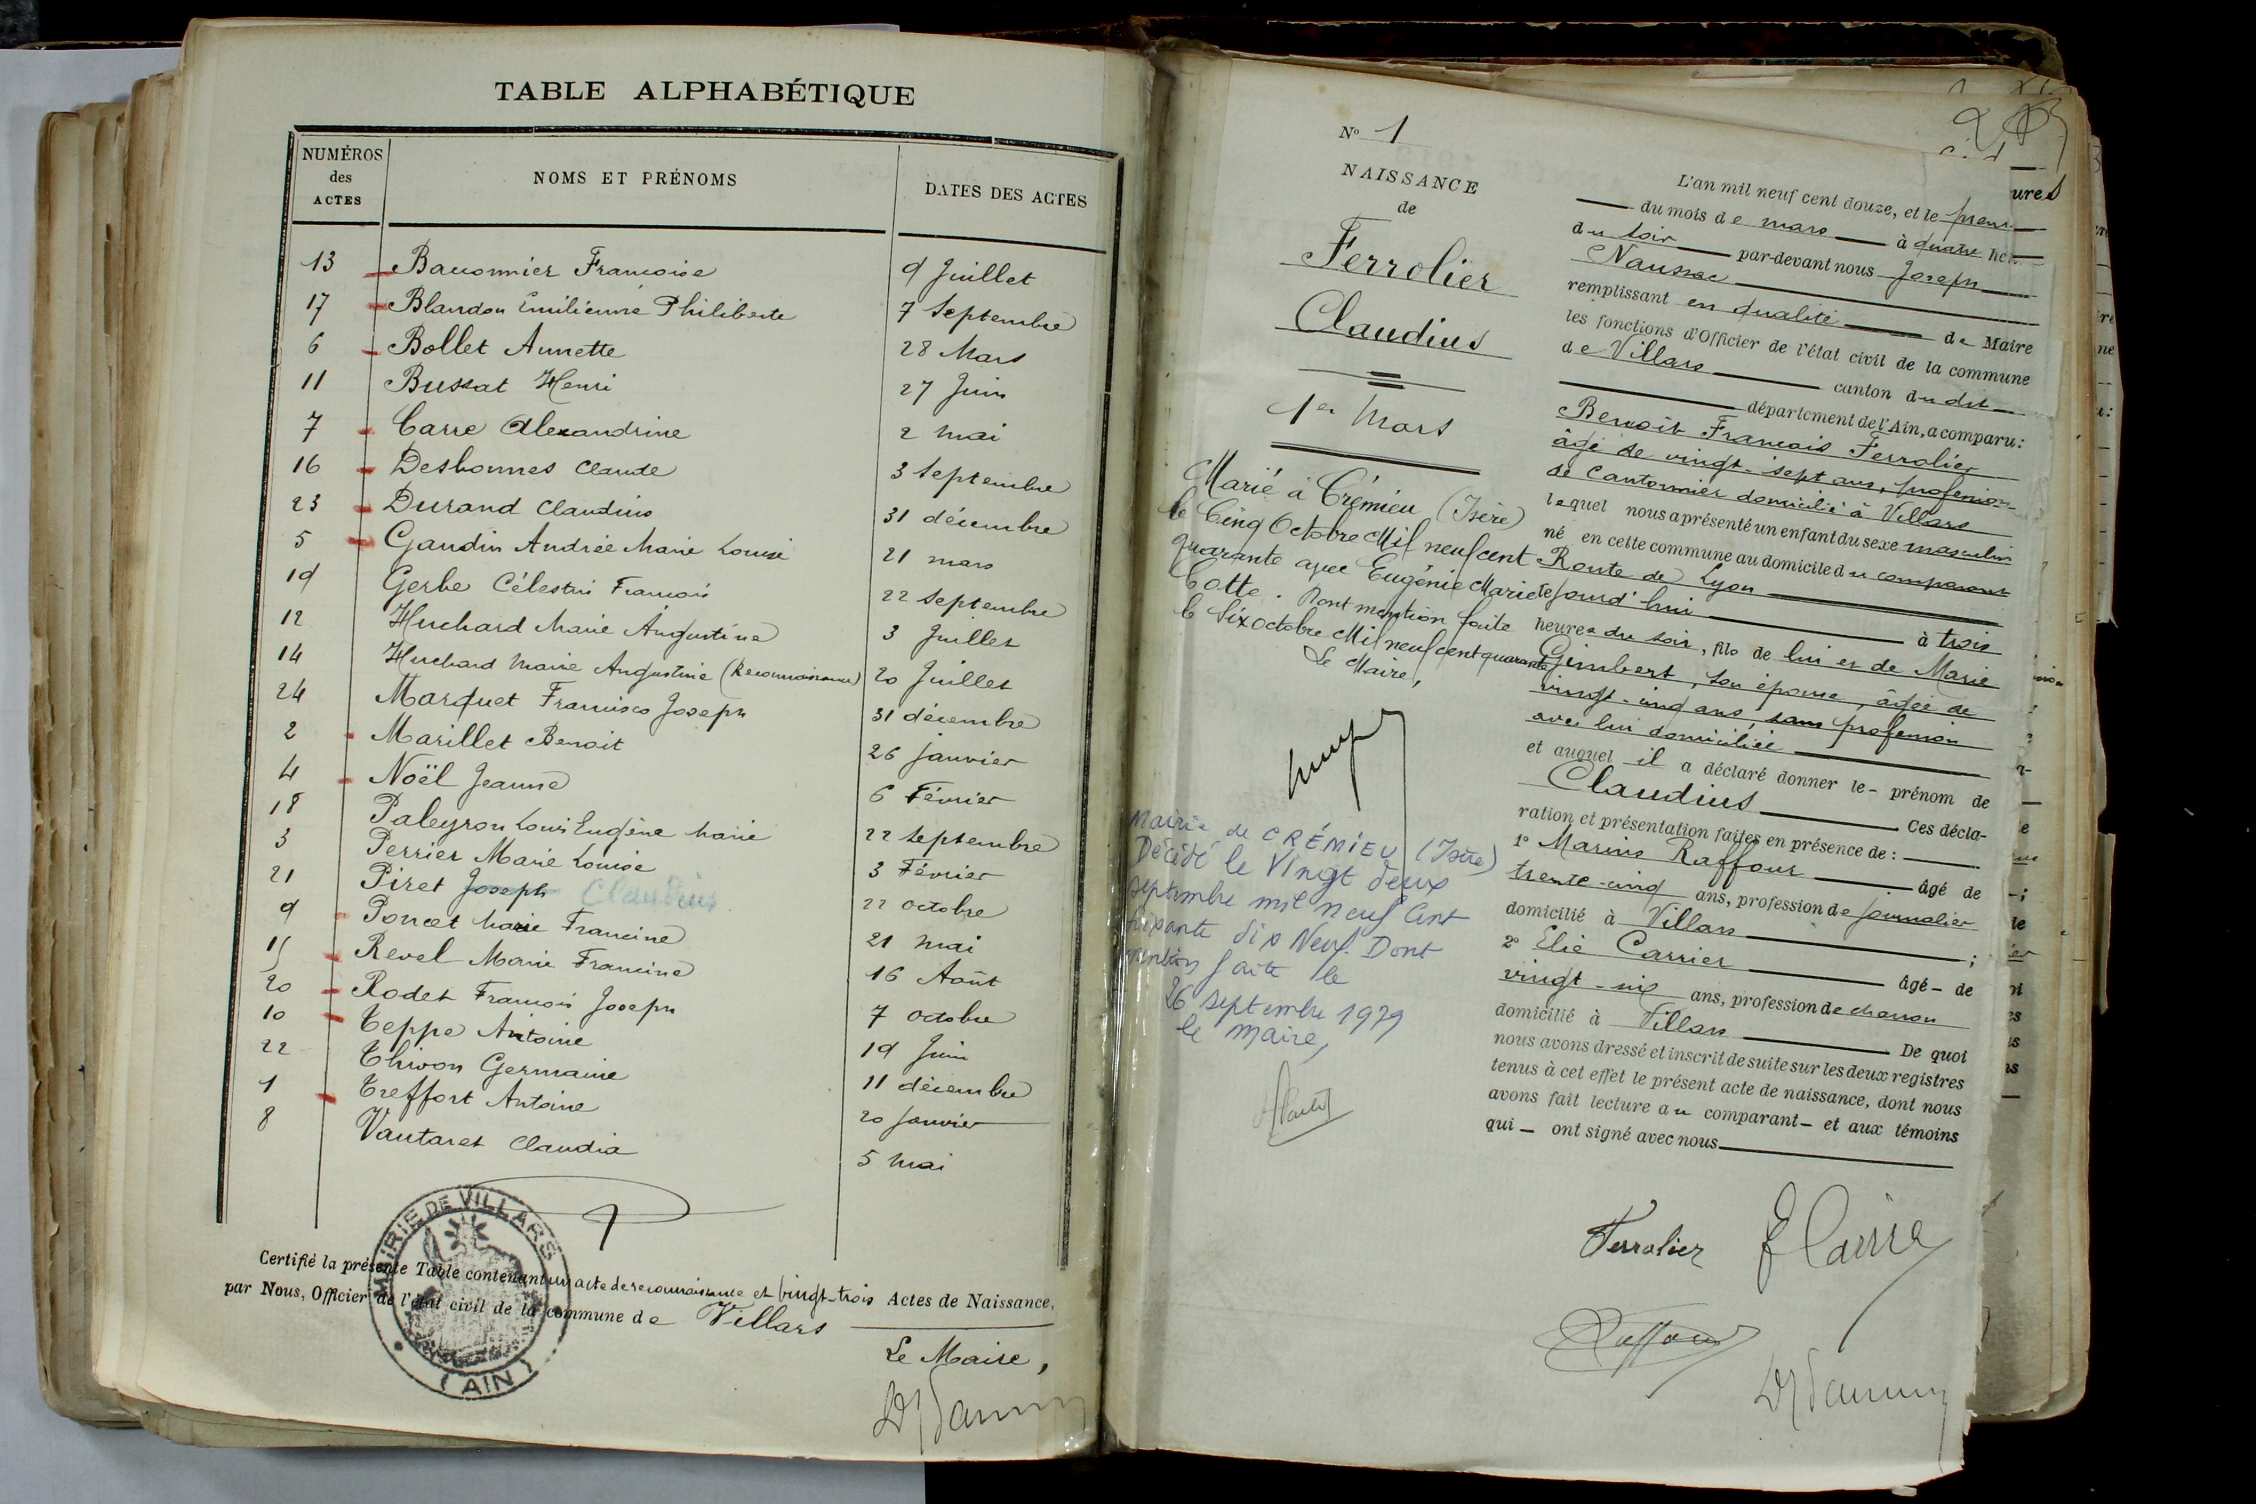 TABLE ALPHABÉTIQUE
NUMÉROS des ACTES
NOMS ET PRÉNOMS
DATES DES ACTES
13 Bauonnier Francoise 9 Juillet
17 Blandon Emilienne Philiberte 7 Septembre
6 Bollet Annette 28 Mars
11 Bussat Henri 27 Juin
7 Carre Alexandrine 2 mai
16 Desbonnes Claude 3 Septembre
23 Durand Claudius 31 décembre
5 Gaudin Andrée Marie Louise 21 mars
19 Gerbe Célestin Francois 22 Septembre
12 Huchard Marie Augustine 3 Juillet
14 Huchard Marie Augustine (Reconnaissance) 20 Juillet
24 Marquet Francisco Joseph 31 décembre
2 Marillet Benoit 26 janvier
4 Noël Jeanne 6 Février
18 Paleyron Louis Eugène Marie 22 Septembre
3 Perrier Marie Louise 3 Février
21 Piret Joseph Claudius 22 octobre
9 Poncet Marie Francine 21 mai
15 Revel Marie Francine 16 Août
20 Rodet Francois Joseph 7 octobre
10 Teppe Antoine 19 Juin
22 Thivon Germaine 11 décembre
1 Treffort Antoine 20 Janvier
8 Vautaret Claudia 5 Mai
Certifié la présente Table contenant un acte de reconnaissance et vingt-trois Actes de Naissance,
par Nous, Officier de l'état civil de la commune de Villars
MAIRIE DE VILLARS
(AIN)
Le Maire,
No 1
NAISSANCE
de
Ferrolier
Claudius
1er Mars
Marié à Crémieu (Isère)
le Cinq Octobre Mil neuf cent
quarante avec Eugénie Marie
Cotte. Dont mention faite
le Six octobre Mil neuf cent quarante
Le Maire,
Mairie de CRÉMIEU (Isère)
Décédé le Vingt deux
septembre mil neuf Cent
soixante dix Neuf. Dont
mention faite le
26 septembre 1979
le Maire,
ures
L'an mil neuf cent douze, et le
du mois de mars à quatre
du soir par-devant nous Joseph
Naussac
remplissant en qualité de Maire
les fonctions d'Officier de l'état civil de la commune
de Villars canton du dit
département de l'Ain, a comparu:
Benoit Francois Ferrolier
âgé de vingt-sept ans, profession
de Cantonnier domicilié à Villars
lequel nous a présenté un enfant du sexe masculin
né en cette commune au domicile du comparant
Route de Lyon
ce jourd'hui à trois
heures du soir, fils de lui et de Marie
Gimbert, son épouse, âgée de
vingt-cinq ans, sans profession
avec lui domiciliée
et auquel il a déclaré donner le - prénom de
Claudius Ces décla-
ration et présentation faites en présence de:
1° Marius Raffour âgé de
trente-cinq ans, profession de journalier
domicilié à Villars ;
2° Elie Carrier âgé - de
vingt-six ans, profession de charron
domicilié à Villars De quoi
nous avons dressé et inscrit de suite sur les deux registres
tenus à cet effet le présent acte de naissance, dont nous
avons fait lecture au comparant - et aux témoins
qui - ont signé avec nous
Ferrolier